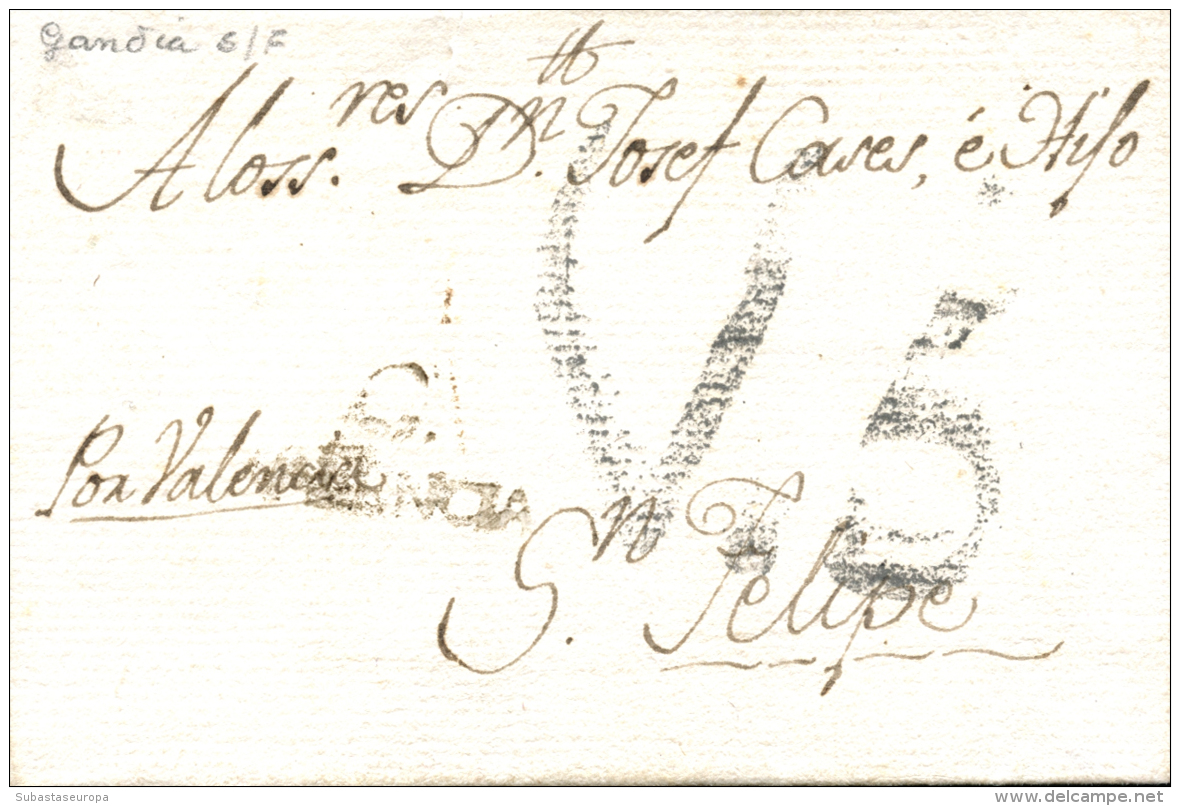 Gandia S/F
A los S.res D.n Josef Cases, é Hijo
Por Valencia
V.5
S.n Felipe
Subastaseuropa
www.delcampe.net